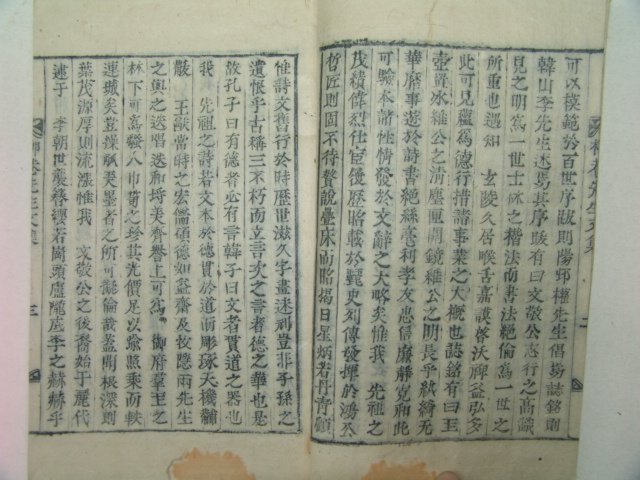 可以模範於百世序跋則陽村權先生倡焉誌銘則
韓山李先生述焉其序跋有曰文敬公志行之高識
見之明爲一世士林之楷法而書法絶倫爲一世之
所重也遇知 玄陵久居喉舌嘉謨啓沃裨益弘多
此可見蘊爲德行措諸事業之大槪也誌銘有曰玉
壺氷雖公之淸鏡雖公之明長乎紈綺無
華靡事遊於詩書絶絲毫利孝友忠信廉解克和此
可驗本諸性情發於文辭之大略矣惟我 先祖之
茂績偉烈仕宦履歷昭載於麗史列傳發揮於鴻
哲匠則固不待贅說疊床而昭揭日星炳若丹靑顧
惟詩文舊行於時歷世滋久字畫迷剜豈非子孫之
遺恨乎古稱三不朽而立言次之言者德之華也是
故孔子曰有德者必有言韓子曰文者貫道之器也
我 先祖之詩若文本於德貫於道而彫琢天機黼
黻 王猷當時之宏儒碩德如益齋及牧隱兩先生
之與之迭唱迭和埓美齊譽上可爲 御府羣玉之
林下可爲發人巾笥之珍其光價足以
連城矣豈操觚弄墨者之所可髣髴哉蓋聞根深則
葉茂源厚則流漲惟我 文敬公之後裔始于麗代
逮于 李朝世襲簪纓若崗頭盧隴底李之赫赫乎
柳巷先生文集
三